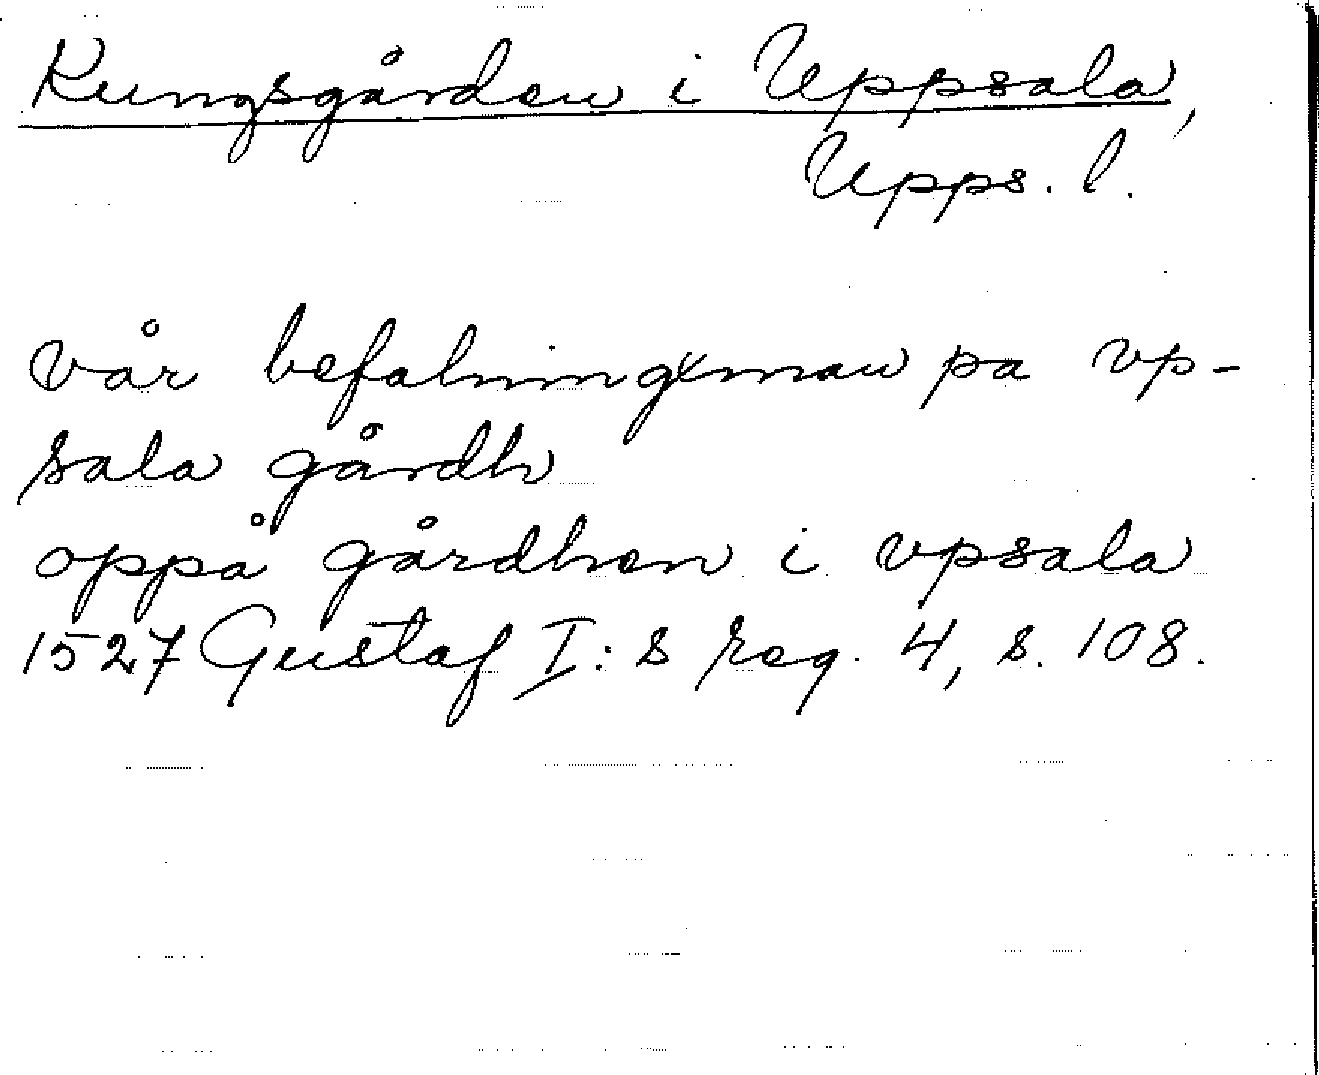 Kungsgården i Uppsala,
Upps. l.
vår befalningxman pa vp-
sala gårdh
oppå gårdhen i vpsala
1527 Gustaf I:s reg. 4, s. 108.